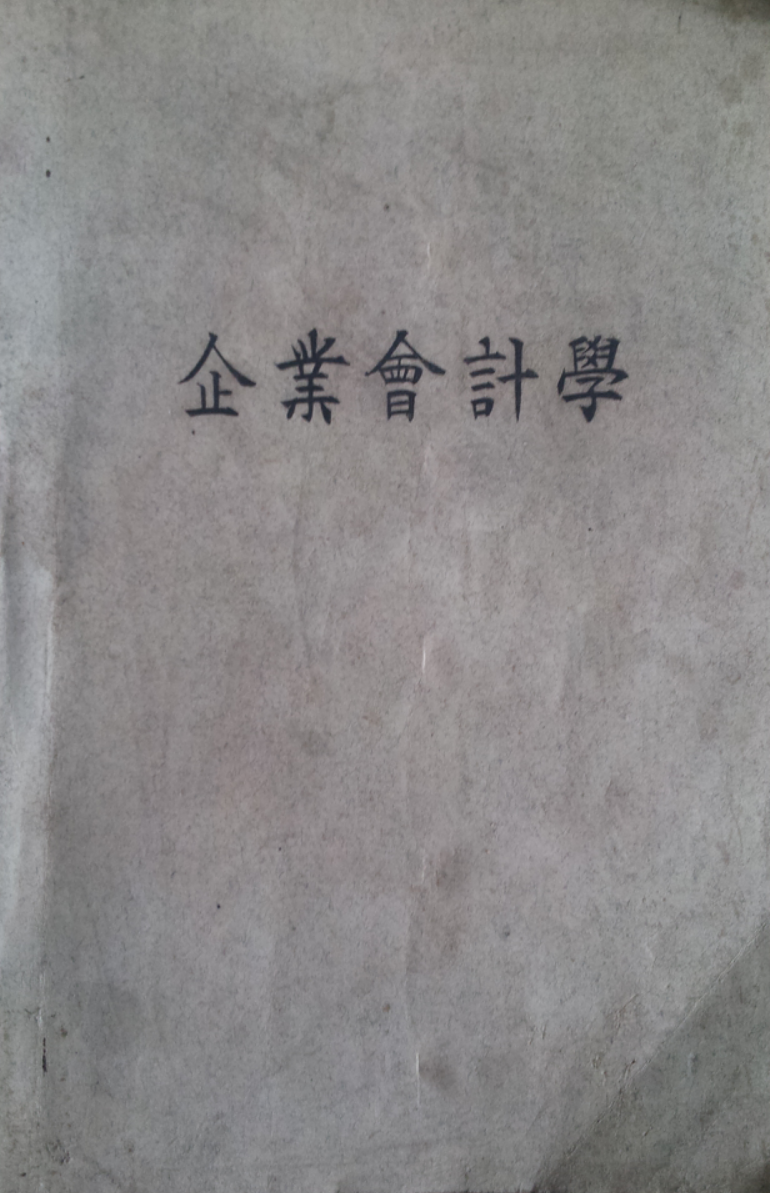 企業會計學